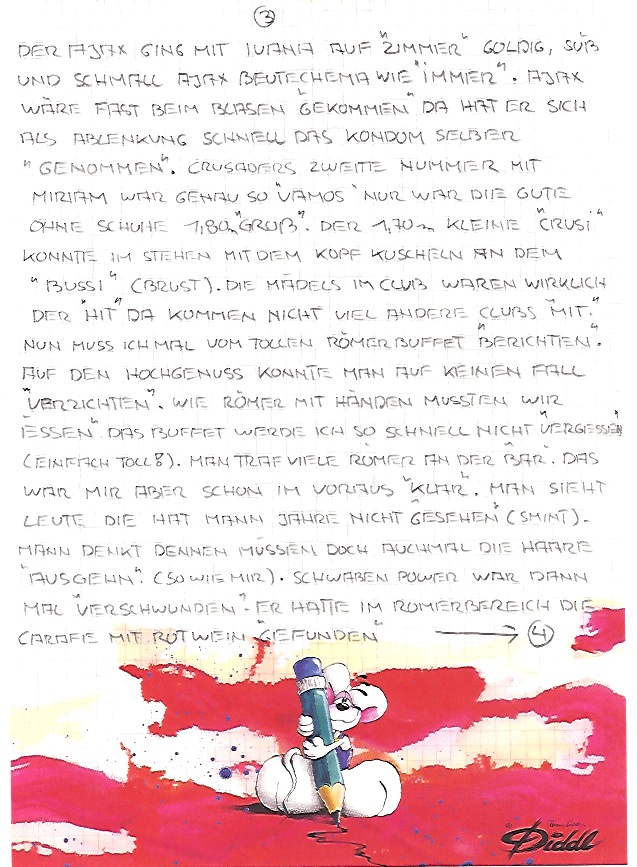 3
DER AJAX GING MIT IVANA AUF "ZIMMER" GOLDIG, SÜß
UND SCHMALL AJAX BEUTECHEMA WIE "IMMER". AJAX
WÄRE FAST BEIM BLASEN "GEKOMMEN" DA HAT ER SICH
ALS ABLENKUNG SCHNELL DAS KONDOM SELBER
"GENOMMEN". CRUSADERS ZWEITE NUMMER MIT
MIRIAM WAR GENAU SO "VAMOS" NUR WAR DIE GUTE
OHNE SCHUHE 1,80m "GROß". DER 1,70m KLEINE "CRUSI"
KONNTE IM STEHEN MIT DEM KOPF KUSCHELN AN DEM
"BUSSI" (BRUST). DIE MÄDELS IM CLUB WAREN WIRKLICH
DER "HIT" DA KOMMEN NICHT VIEL ANDERE CLUBS "MIT."
NUN MUSS ICH MAL VOM TOLLEN RÖMERBUFFET "BERICHTEN".
AUF DEN HOCHGENUSS KONNTE MAN AUF KEINEN FALL
"VERZICHTEN". WIE RÖMER MIT HÄNDEN MUSSTEN WIR
"ESSEN" DAS BUFFET WERDE ICH SO SCHNELL NICHT "VERGESSEN"
(EINFACH TOLL!). MAN TRAF VIELE RÖMER AN DER "BAR". DAS
WAR MIR ABER SCHON IM VORAUS "KLAR". MAN SIEHT
LEUTE DIE HAT MANN JAHRE NICHT "GESEHEN" (SMINT).
MANN DENKT DENNEN MÜSSEN DOCH AUCHMAL DIE HAARE
"AUSGEHN". (SO WIE MIR). SCHWABEN POWER WAR DANN
MAL "VERSCHWUNDEN". ER HATTE IM RÖMERBEREICH DIE
CARAFFE MIT ROTWEIN "GEFUNDEN" → 4
Diddl